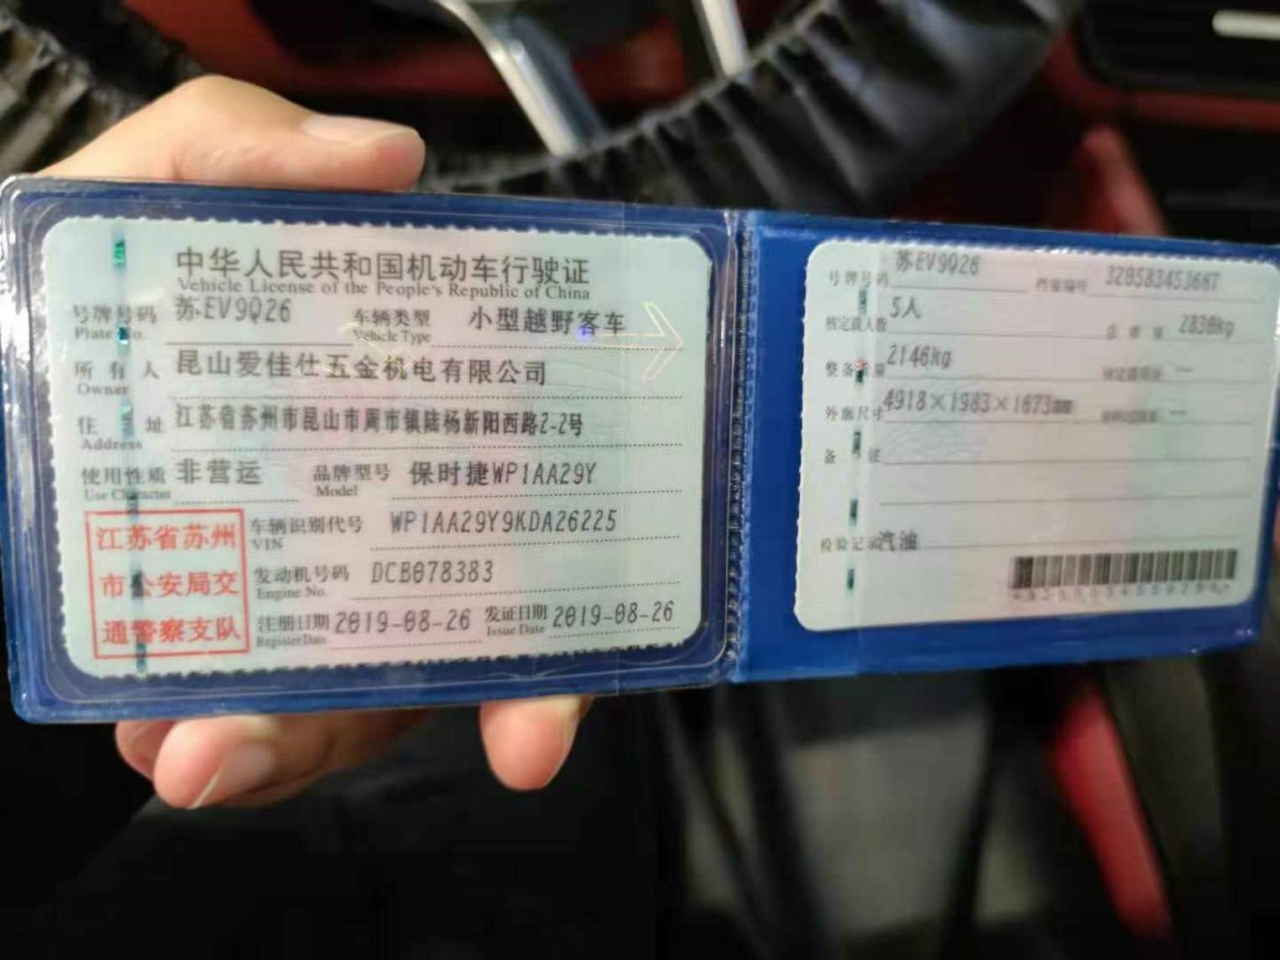 中华人民共和国机动车行驶证
Vehicle License of the People's Republic of China
号牌号码 苏EV9Q26 车辆类型 小型越野客车
Plate No. Vehicle Type
所有人 昆山爱佳仕五金机电有限公司
Owner
住址 江苏省苏州市昆山市周市镇陆杨新阳西路2-2号
Address
使用性质 非营运 品牌型号 保时捷WP1AA29Y
Use Character Model
江苏省苏州
市公安局交
通警察支队
车辆识别代号 WP1AA29Y9KDA26225
VIN
发动机号码 DCB078383
Engine No.
注册日期 2019-08-26 发证日期 2019-08-26
Register Date Issue Date
号牌号码 苏EV9Q26 档案编号 320583453667
核定载人数 5人 总质量 2830kg
整备质量 2146kg 核定载质量 --
外廓尺寸 4918×1983×1673mm --
备注
检验记录 汽油